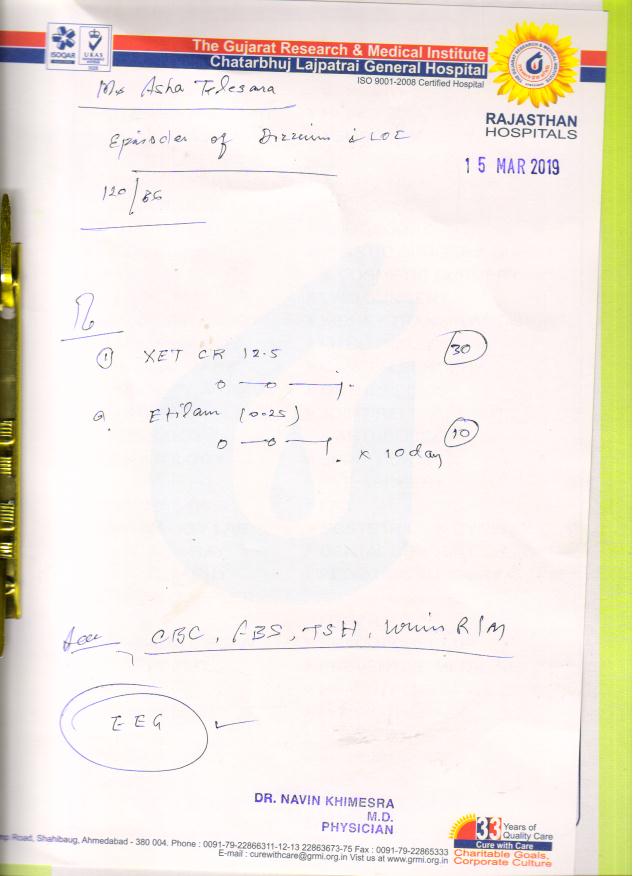 ISOQAR
UKAS
The Gujarat Research & Medical Institute
Chatarbhuj Lajpatrai General Hospital
ISO 9001-2008 Certified Hospital
RAJASTHAN
HOSPITALS
15 MAR 2019
Asha
Episodes of LOC
120/86
① XET CR 12.5 30
0 — 0 — 1
Etilam (0.25) 10
0 — 0 — 1 x 10 day
CBC, FBS, TSH, Urine R/M
EEG
DR. NAVIN KHIMESRA
M.D.
PHYSICIAN
33 Years of
Quality Care
Cure with Care
Charitable Goals,
Corporate Culture
Road, Shahibaug, Ahmedabad - 380 004. Phone : 0091-79-22866311-12-13 22863673-75 Fax : 0091-79-22865333
E-mail : curewithcare@grmi.org.in Vist us at www.grmi.org.in